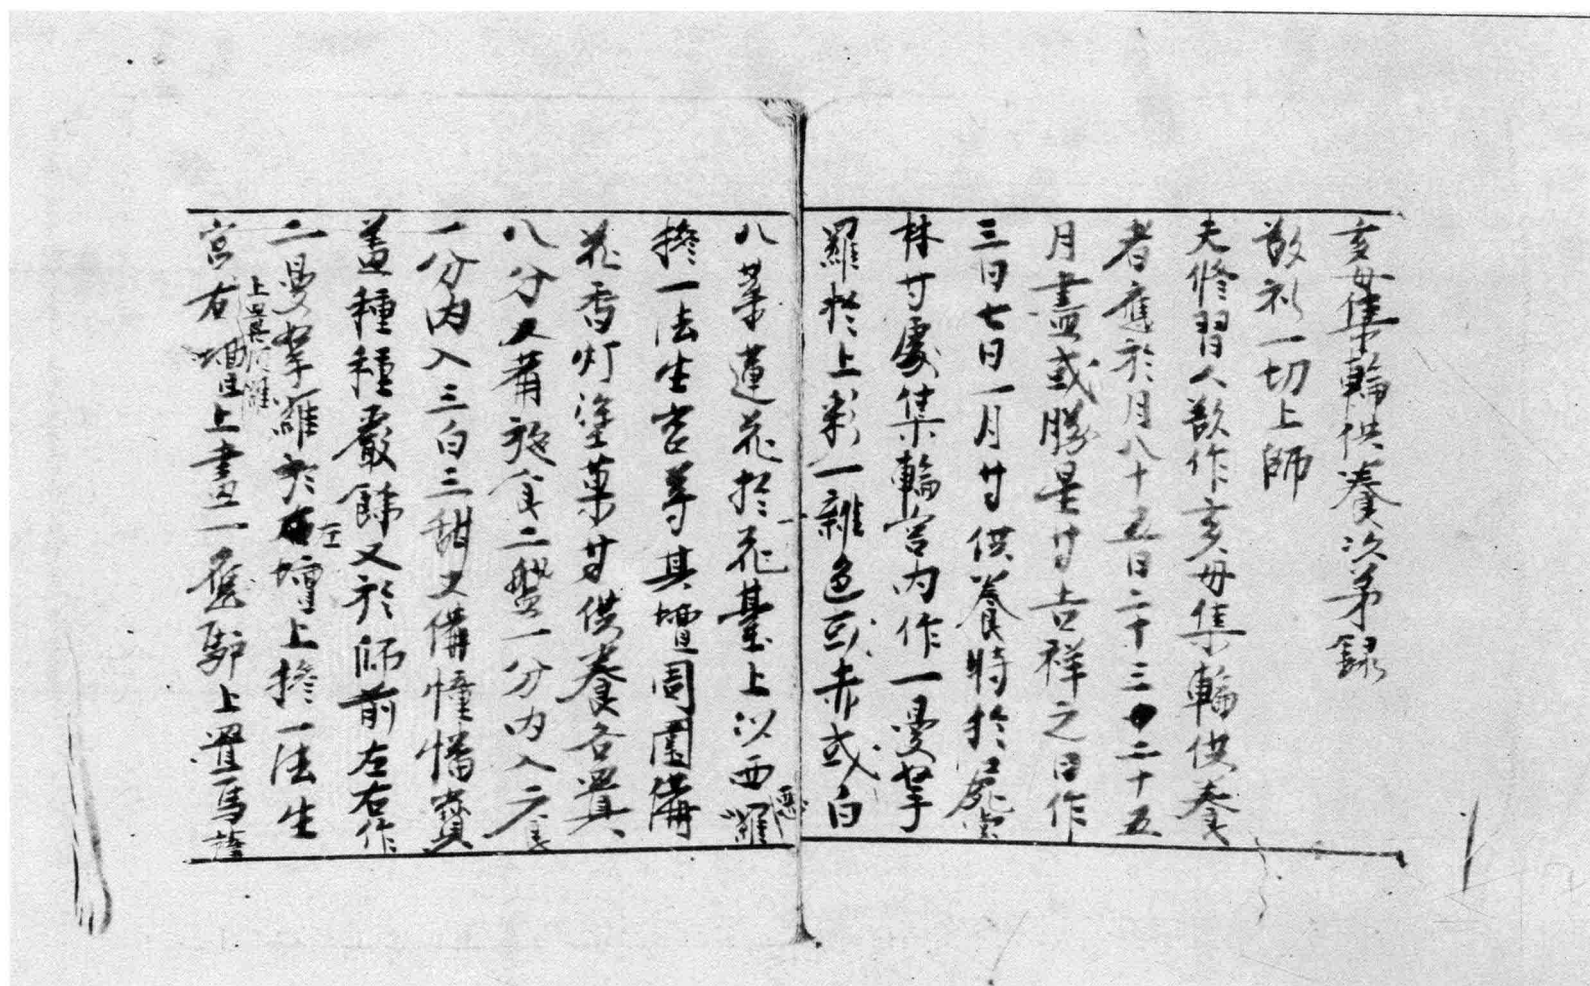 亥母集輪供養次苐録
敬礼一切上師
夫修習人欲作亥母集輪供養
者應於月八十五日二十三二十五
月盡或勝星䒭吉祥之日作
三日七日一月䒭供養時於屍堂
林䒭處集輪宮内作一曼拏
羅於上粉一雜色或赤或白
八葉蓮花於花臺上以西囉
於一法生宮䓁其壇周圍備
花香灯塗菓䒭供養各置
八分又着施食二盤一分内入六食
一分内入三白三甜又備幢幡寳
盖種種嚴餙又於师前左右作
二曼拏羅於左壇上於一法生
宮右壇上畫一 上置馬